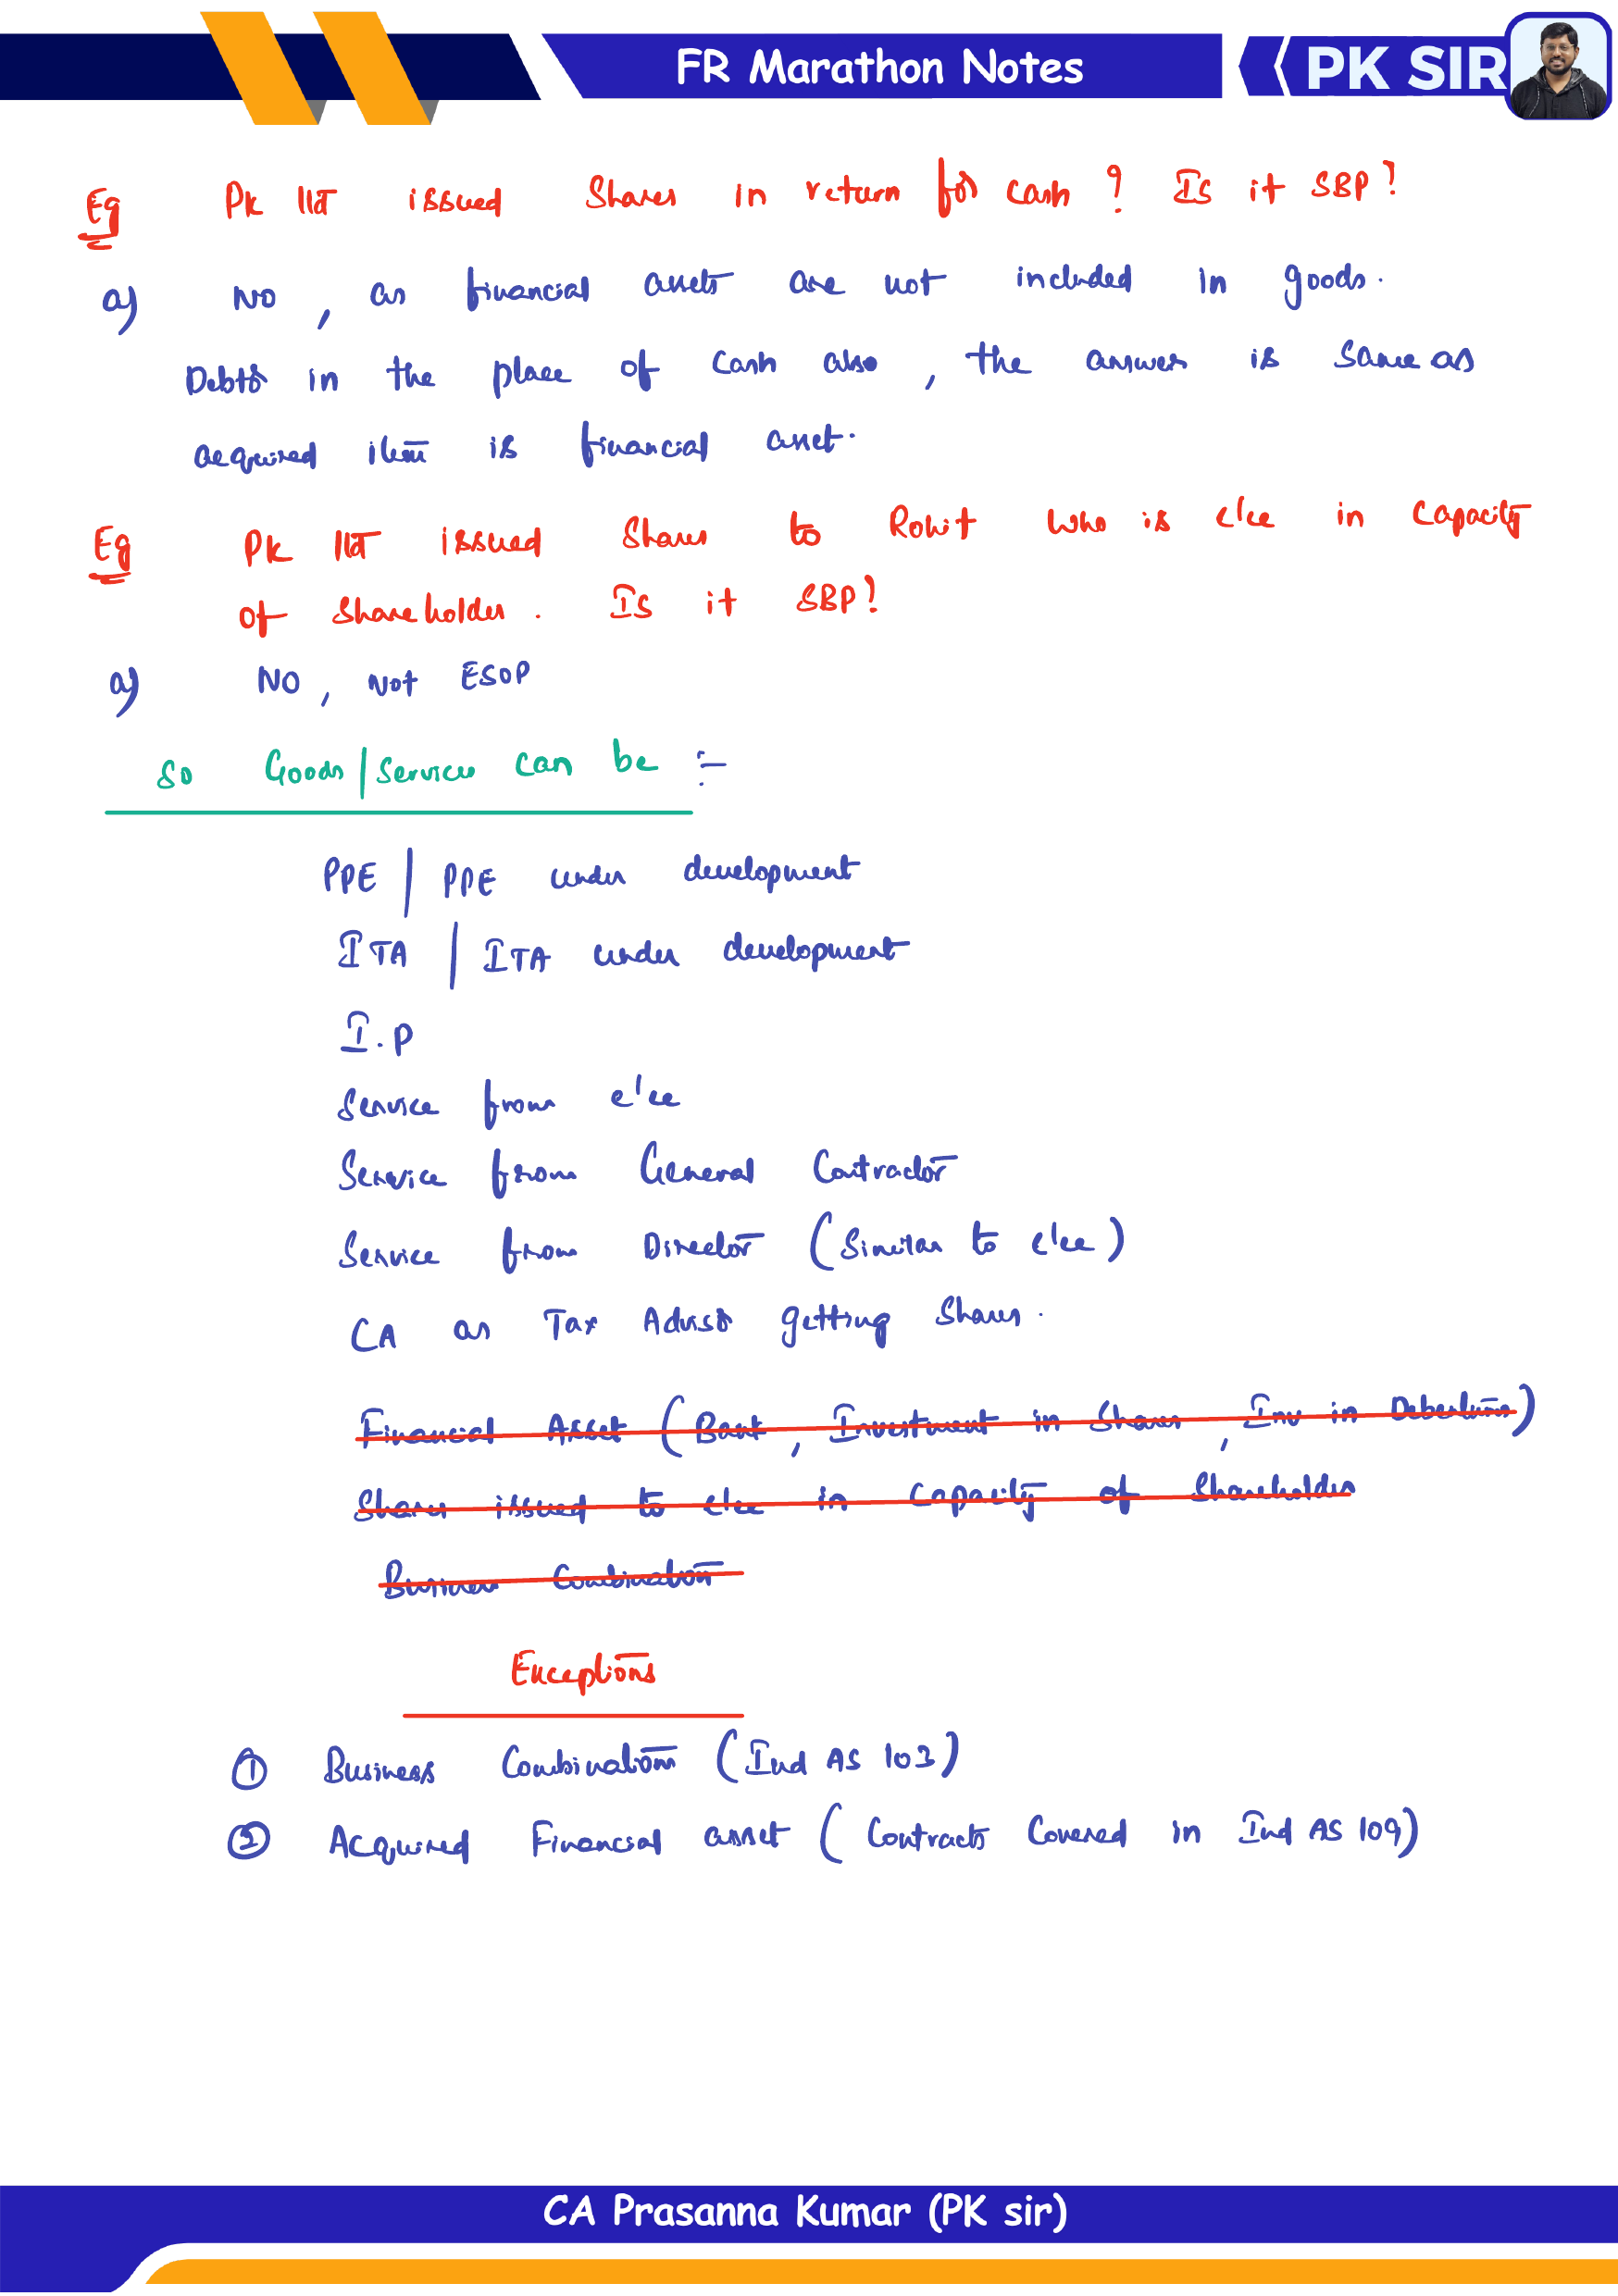 FR Marathon Notes
PK SIR
Eg PK ltd issued Shares in return for cash ? Is it SBP?
a) NO, as financial assets are not included in goods.
Debts in the place of cash also, the answer is same as
acquired item is financial asset.
Eg PK ltd issued Shares to Rohit who is e'ee in capacity
of shareholder. Is it SBP?
a) NO, Not ESOP
So Goods/Services can be :-
PPE / PPE under development
ITA / ITA under development
I.P
Service from e'ee
Service from General Contractor
Service from Director (Similar to e'ee)
CA as Tax Advisor getting Shares.
Financial Asset (Bank, Investment in Shares, Inv in Debentures)
Shares issued to e'ee in capacity of Shareholder
Business Combination
Exceptions
① Business Combination (Ind AS 103)
② Acquired Financial asset (Contracts Covered in Ind AS 109)
CA Prasanna Kumar (PK sir)